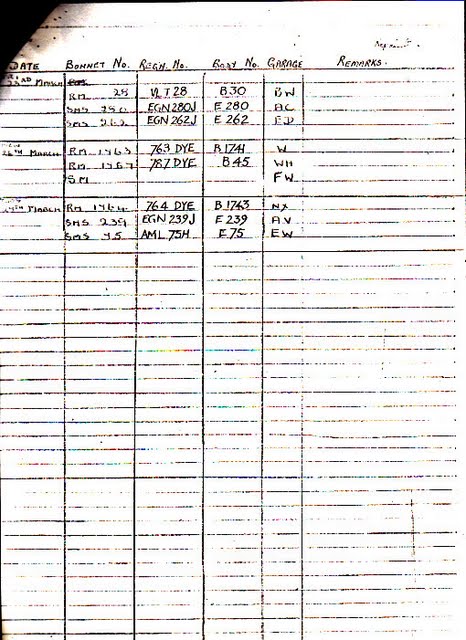 DATE BONNET No. REGN. No. BODY No. GARAGE REMARKS.
MARCH
RM 28 VLT 28 B30 BW
SMS 280 EGN 280J E 280 AC
SMS 262 EGN 262J E 262 ED
MARCH RM 1763 763 DYE B1741 W
RM 1787 787 DYE B45 WH
SM FW
MARCH RM 1764 764 DYE B 1743 NX
SMS 239 EGN 239J E 239 AV
SMS 75 AML 75H E 75 EW